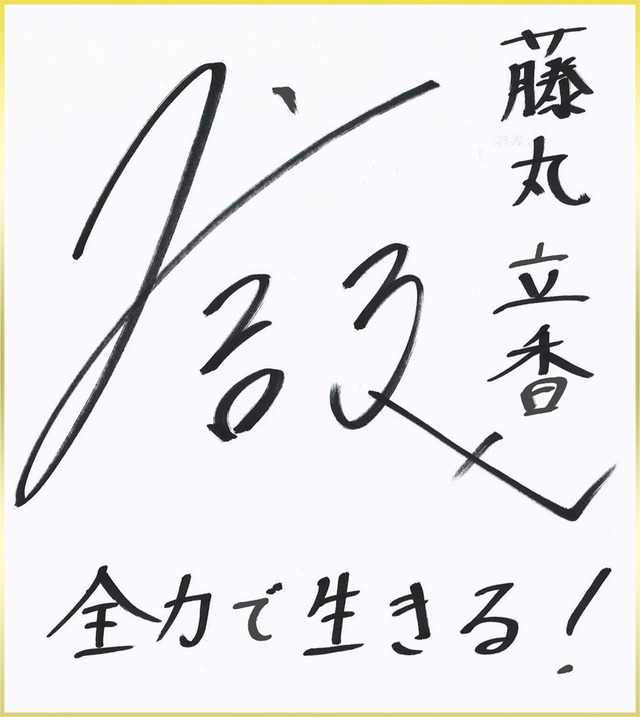 藤丸 立香
全力で生きる!